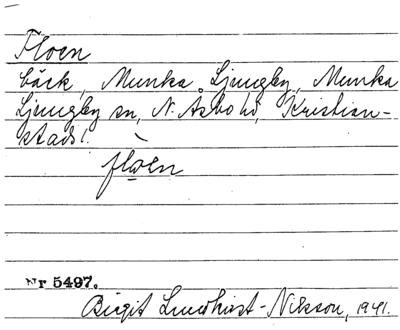 Floen
bäck, Munka Ljungby, Munka
Ljungby sn, N. Åsbo hd, Kristian-
stads l.
floen
Nr 5497.
Birgit Lundkvist-Nilsson, 1941.